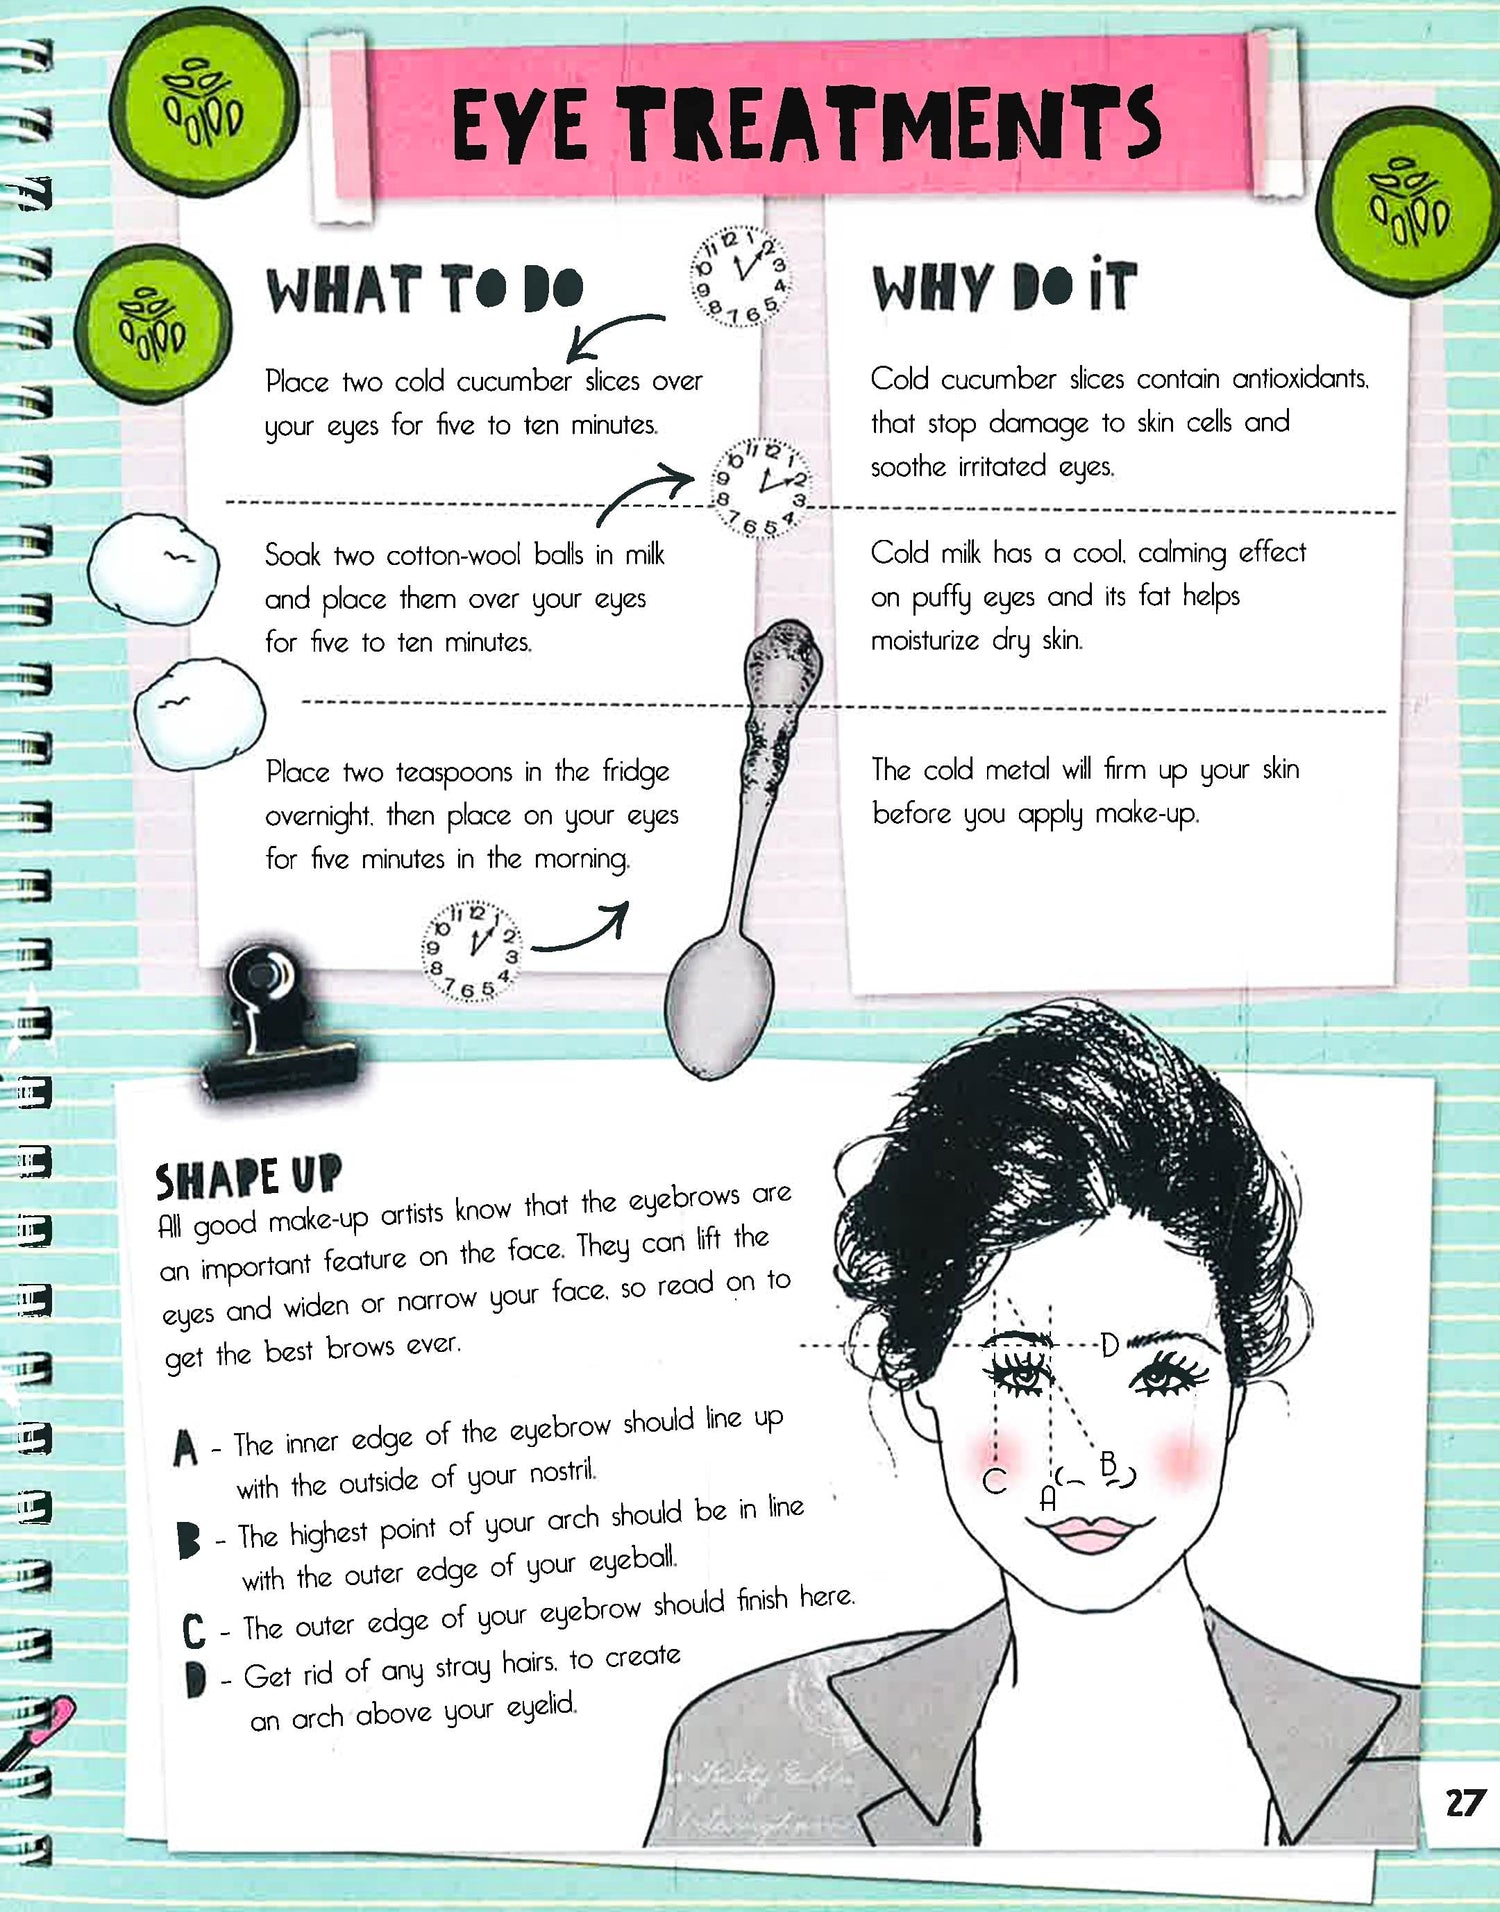 EYE TREATMENTS
WHAT TO DO
Place two cold cucumber slices over
your eyes for five to ten minutes.
WHY DO iT
Cold cucumber slices contain antioxidants,
that stop damage to skin cells and
soothe irritated eyes.
Soak two cotton-wool balls in milk
and place them over your eyes
for five to ten minutes.
Cold milk has a cool, calming effect
on puffy eyes and its fat helps
moisturize dry skin.
Place two teaspoons in the fridge
overnight, then place on your eyes
for five minutes in the morning.
The cold metal will firm up your skin
before you apply make-up.
SHAPE UP
All good make-up artists know that the eyebrows are
an important feature on the face. They can lift the
eyes and widen or narrow your face, so read on to
get the best brows ever.
A - The inner edge of the eyebrow should line up
with the outside of your nostril.
B - The highest point of your arch should be in line
with the outer edge of your eyeball.
C - The outer edge of your eyebrow should finish here.
D - Get rid of any stray hairs, to create
an arch above your eyelid.
D
B
C
A
27